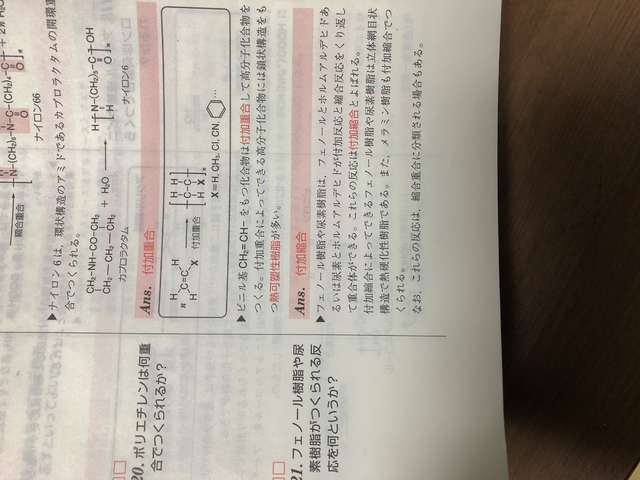 縮合重合
ナイロン66
▶ナイロン6は、環状構造のアミドであるカプロラクタムの開環重
合でつくられる。
CH₂-NH-CO-CH₂
CH₂-CH₂-CH₂
+ H₂O
カプロラクタム
ナイロン6
20. ポリエチレンは何重
合でつくられるか?
Ans. 付加重合
付加重合
X=H, CH₃, Cl, CN, …
▶ビニル基 CH₂=CH- をもつ化合物は付加重合して高分子化合物を
つくる。付加重合によってできる高分子化合物には鎖状構造をも
つ熱可塑性樹脂が多い。
21. フェノール樹脂や尿
素樹脂がつくられる反
応を何というか?
Ans. 付加縮合
▶フェノール樹脂や尿素樹脂は、フェノールとホルムアルデヒドあ
るいは尿素とホルムアルデヒドが付加反応と縮合反応をくり返し
て重合体ができる。これらの反応は付加縮合とよばれる。
付加縮合によってできるフェノール樹脂や尿素樹脂は立体網目状
構造で熱硬化性樹脂である。また、メラミン樹脂も付加縮合でつ
くられる。
なお、これらの反応は、縮合重合に分類される場合もある。